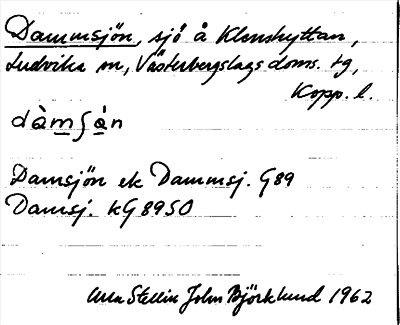 Dammsjön, sjö å Klenshyttan,
Ludvika sn, Västerbergslags doms. tg,
Kopp. l.
dàm̲ʃà̲n
Damsjön ek Dammsj. G89
Damsj. kG 89 SO
Stellin John Björklund 1962